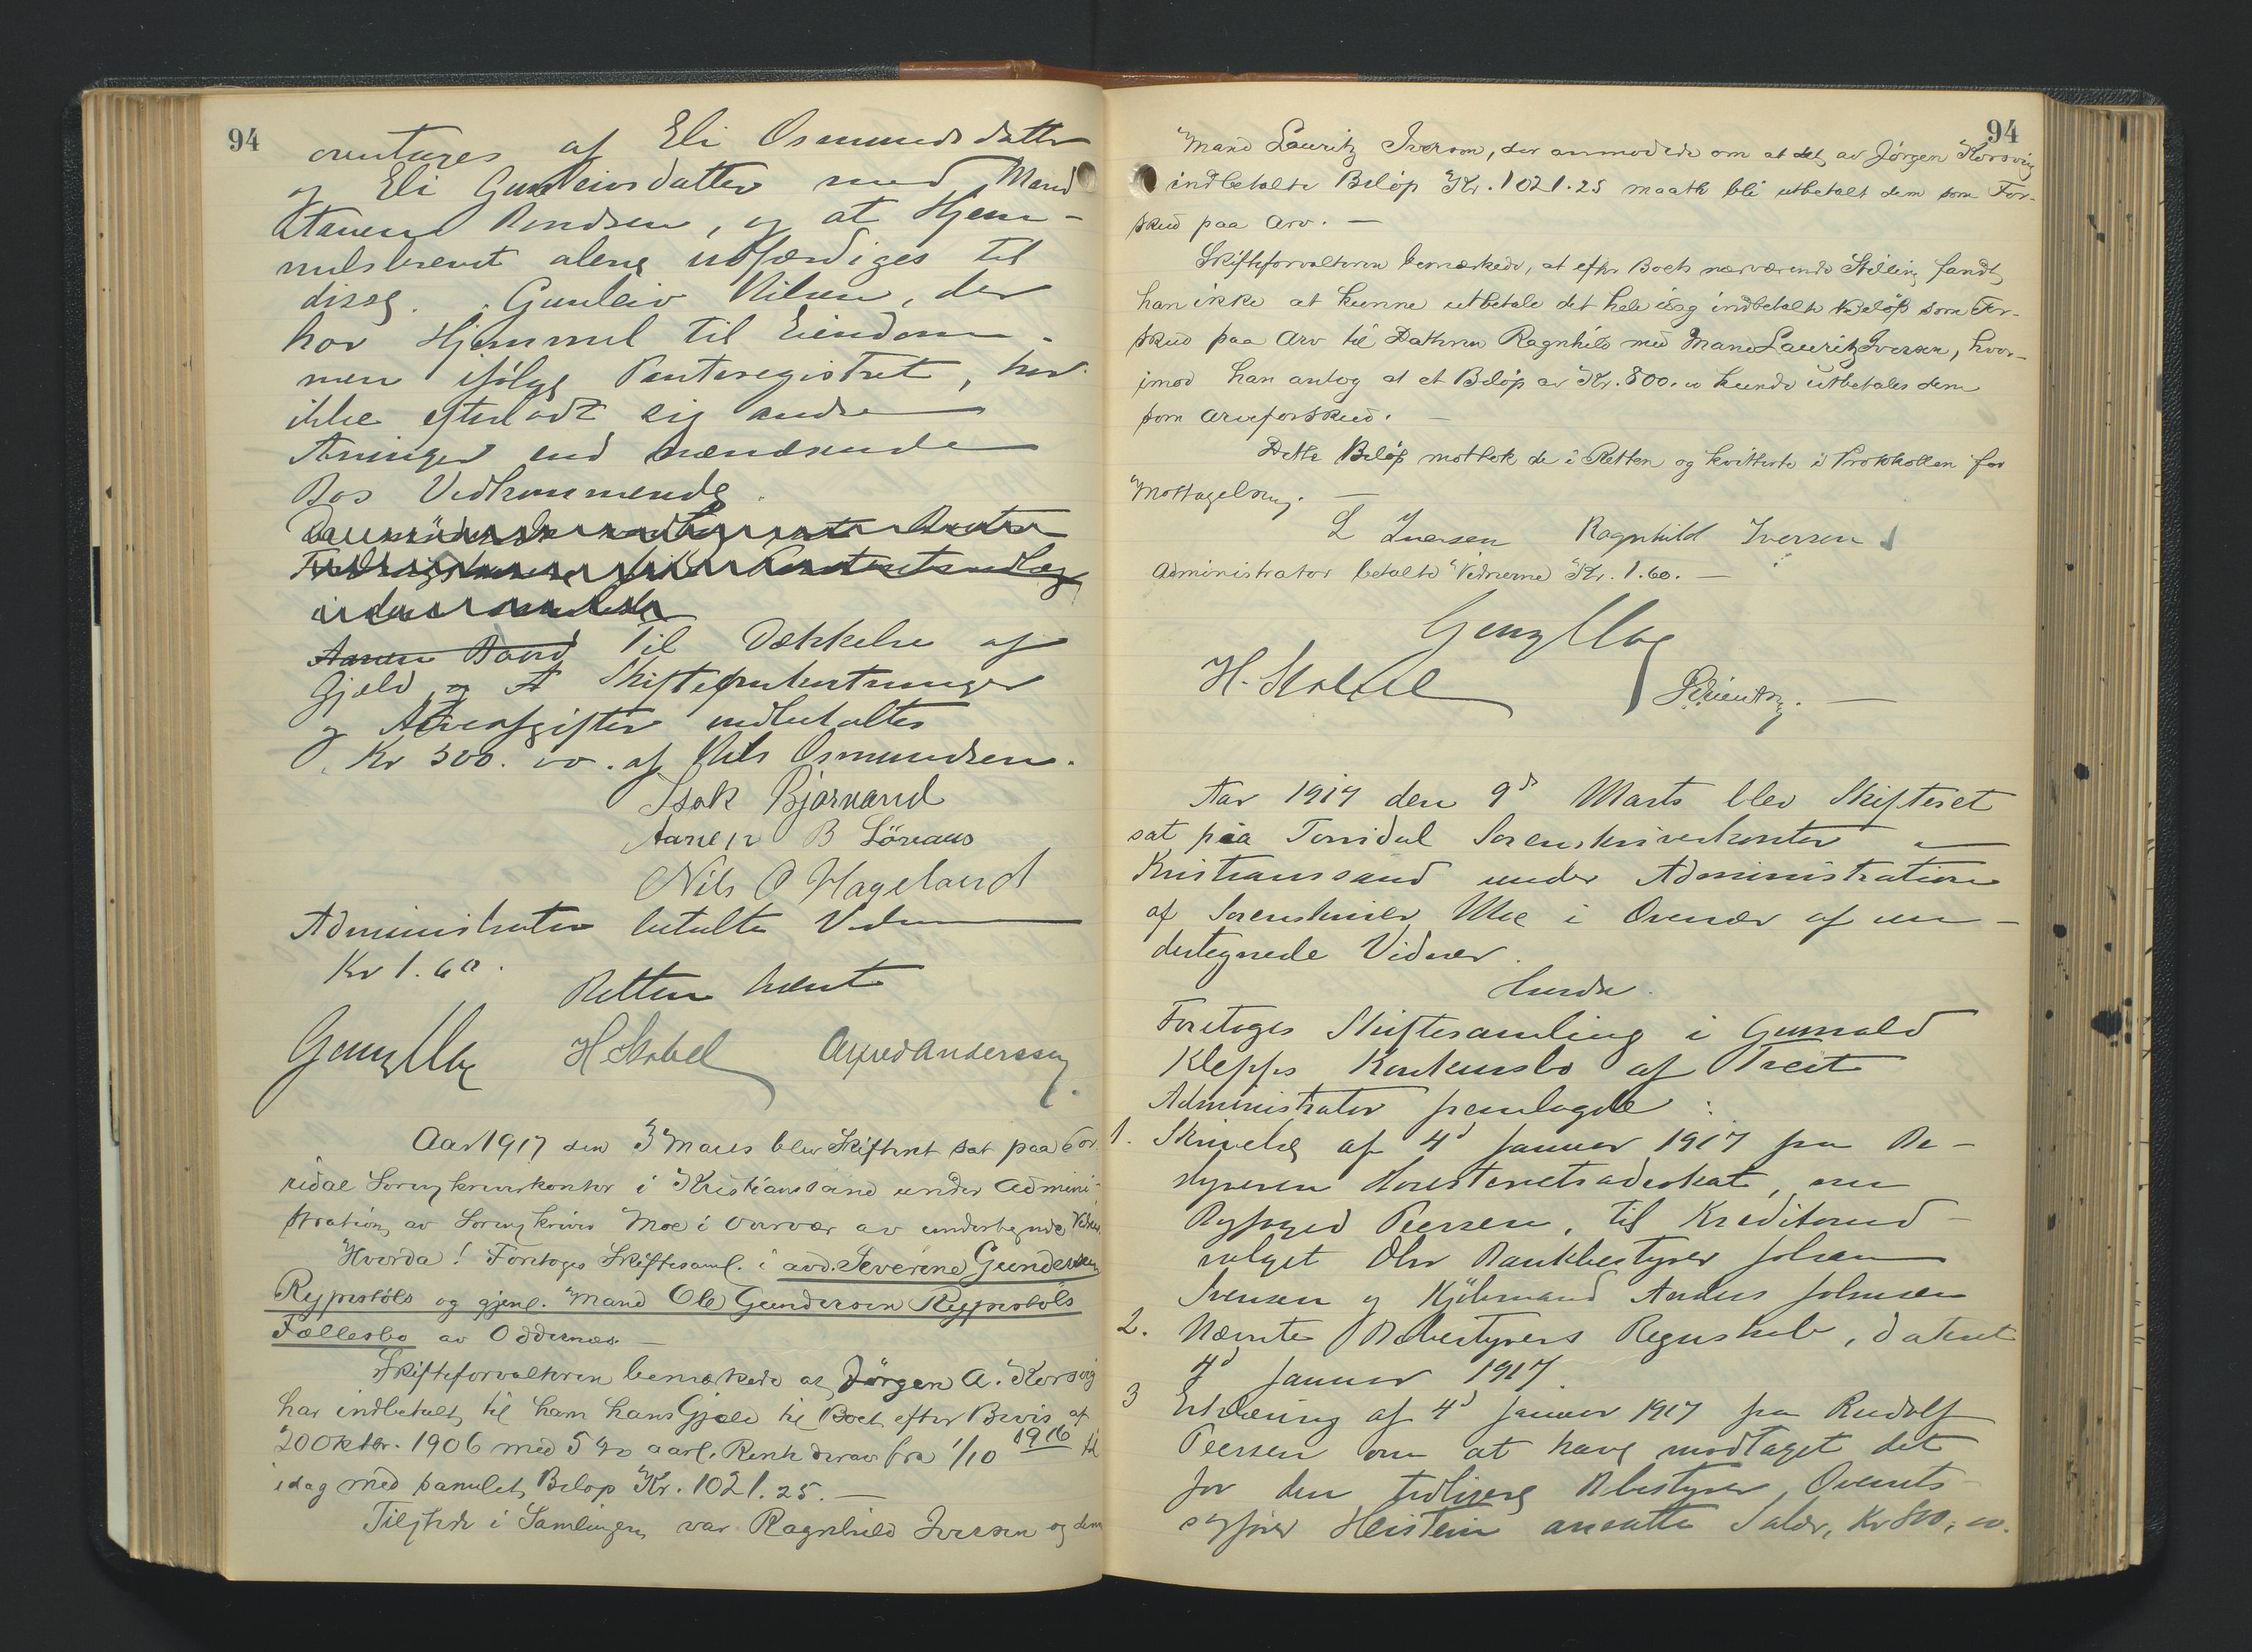 94
overtages af Eli Osmundsdatter
og Eli Gunleivsdatter med Mand
Stener Knudsen, og at Hjem-
melsbrevet alene udfærdiges til
disse. Gunleiv Nilsen, der
har Hjemmel til Eiendom-
men ifølge Panteregistret, har
ikke efterladt sig andre
Arvinger end nærværende
Bos Vedkommende.
Aanen Baard Til Dækkelse af
Gjæld og Skifteomkostninger
og Arveafgifter indbetaltes
Kr 500.00. af Nils Osmundsen.
Isak Bjorvand
Aanen B Lövaas
Nils O Hageland
Administrator betalte Vidnerne
Kr 1.60.
Retten hævet
Georg Moe H Stabel Alfred Anderssen
Aar 1917 den 3 Marts blev Skifteret sat paa Tor-
ridal Sorenskriverkontor i Kristianssand under Admini-
stration av Sorenskriver Moe i Overvær av undertegnede Vidner.
Hvorda! Foretoges Skiftesaml. i avd. Severine Gundersen
Rypestöls og gjenl. Mand Ole Gundersen Rypestöls
Fællesbo av Oddernæs. —
Skifteforvalteren bemærkede at Jörgen A. Korsvig
har indbetalt til ham hans Gjæld til Boet efter Bevis af
20 Oktbr. 1906 med 5 % aarl. Rente derav fra 1/10 1916 til
idag med samlet Belöp Kr. 1021.25. —
Tilstede i Samlingen var Ragnhild Iversen og dennes
94
Mand Lauritz Iversen, der anmodede om at det av Jörgen Korsvig
indbetalte Belöp Kr. 1021.25 maatte bli utbetalt dem som For-
skud paa Arv. —
Skifteforvalteren bemærkede, at efter Boets nærværende Stilling fandt
han ikke at kunne utbetale det hele idag indbetalte Belöp som For-
skud paa Arv til Datteren Ragnhild med Mand Lauritz Iversen, hvor-
imod han antog at et Belöp av Kr. 800.00 kunde utbetales dem
som Arveforskud. —
Dette Belöp mottok de i Retten og kvitterte i Protokollen for
Mottagelsen. —
L Iversen Ragnhild Iversen
Administrator betalte Vidnerne Kr. 1.60. —
Georg Moe
H. Stabel
Aar 1917 den 9d Marts blev Skifteret
sat paa Torridal Sorenskriverkontor i
Kristianssand under Administration
af Sorenskriver Moe i Overvær af un-
dertegnede Vidner.
Hvorda.
Foretoges Skiftesamling i Gunvald
Klepps Konkursbo af Treit
Administrator fremlagde:
1. Skrivelse af 4d Januar 1917 fra Be-
styreren Overretsadvokat, nu
Byfoged Peersen, til Kreditorud-
valget Dhr Bankbestyrer Johan
Svensen og Kjöbmand Anders Johnsen
2. Nævnte Bobestyrers Regnskab, dateret
4d Januar 1917.
3 Erklæring af 4d Januar 1917 fra Rudolf
Peersen om at have modtaget det
for den tidligere Bobestyrer Overrets-
sagförer Heistein ansatte Salær, Kr 800,00.